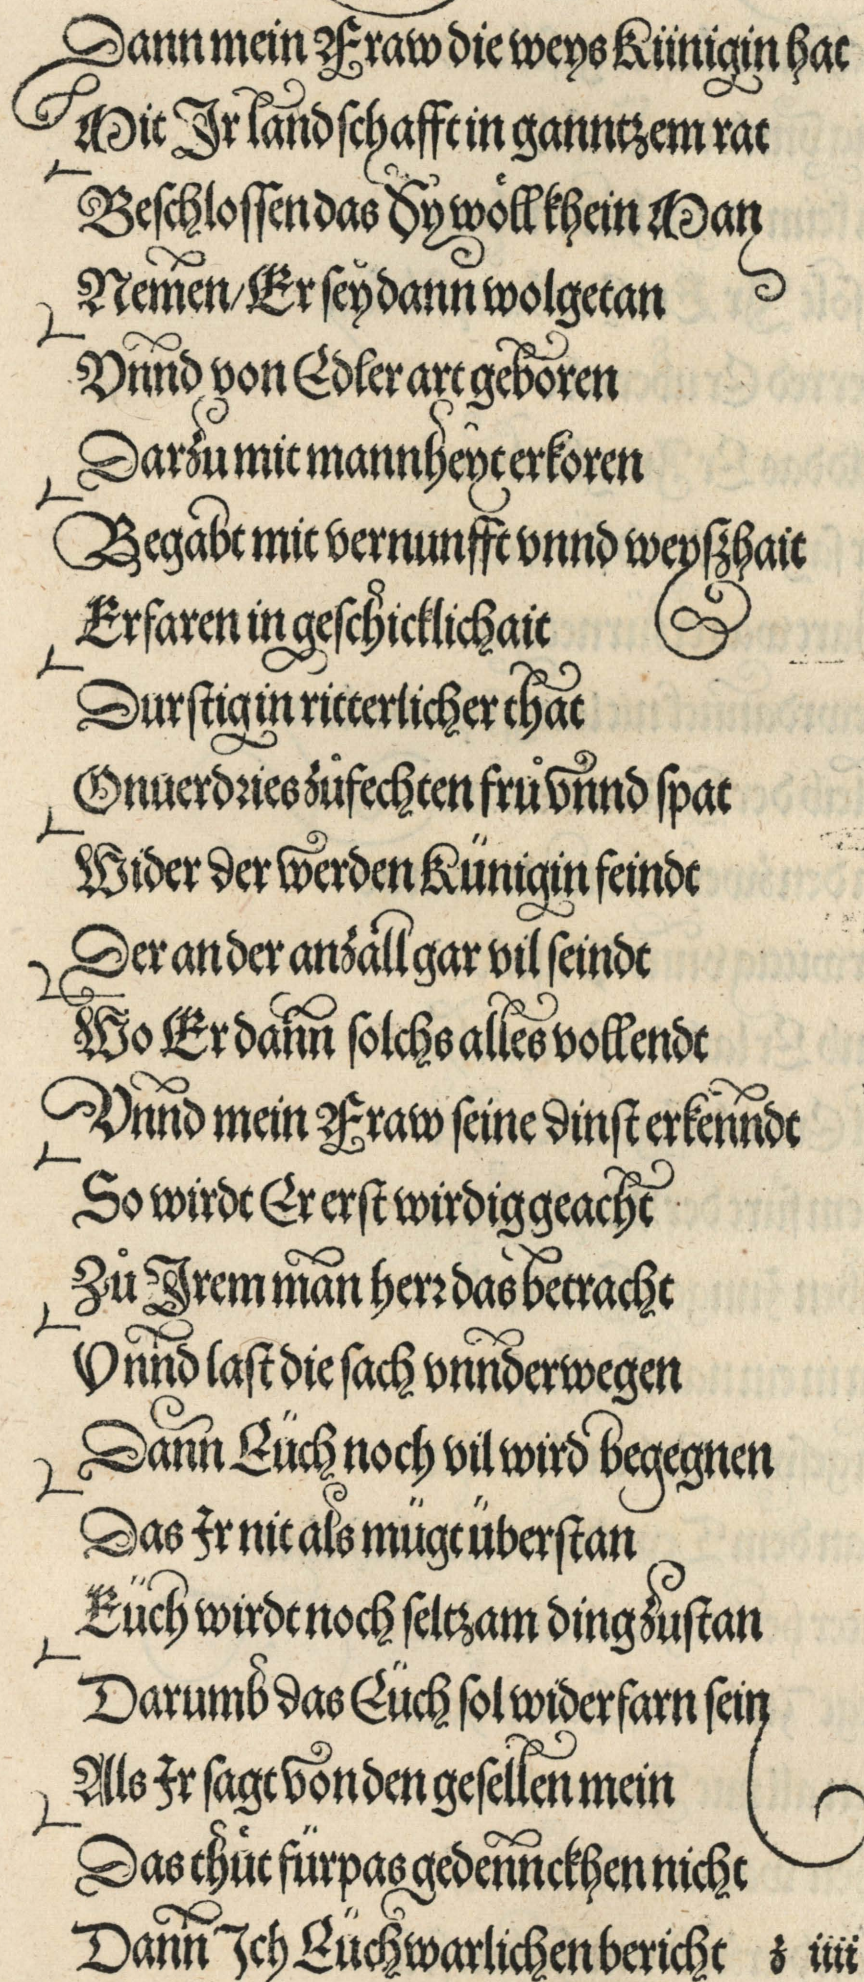 Dann mein Fraw die weys Künigin hat
Mit Jr landschafft in ganntzem rat
Beschlossen das Sy wöll khein Man
Nemen/ Er sey dann wolgetan
Vnnd von Edler art geboren
Darzu mit mannheyt erkoren
Begabt mit vernunfft vnnd weyszhait
Erfaren in geschicklichait
Durstig in ritterlicher that
Onuerdries zůfechten frů vnnd spat
Wider der werden Künigin feindt
Der an der anzall gar vil seindt
Wo Er dann solchs alles vollendt
Vnnd mein Fraw seine dinst erkenndt
So wirdt Er erst wirdig geacht
Zů Jrem man herr das betracht
Vnnd last die sach vnnderwegen
Dann Eüch noch vil wird begegnen
Das Jr nit als mügt überstan
Eüch wirdt noch seltzam ding zustan
Darumb das Eüch sol widerfarn sein
Als Jr sagt von den gesellen mein
Das thůt fürpas gedennckhen nicht
Dann Jch Eüch warlichen bericht z iiii